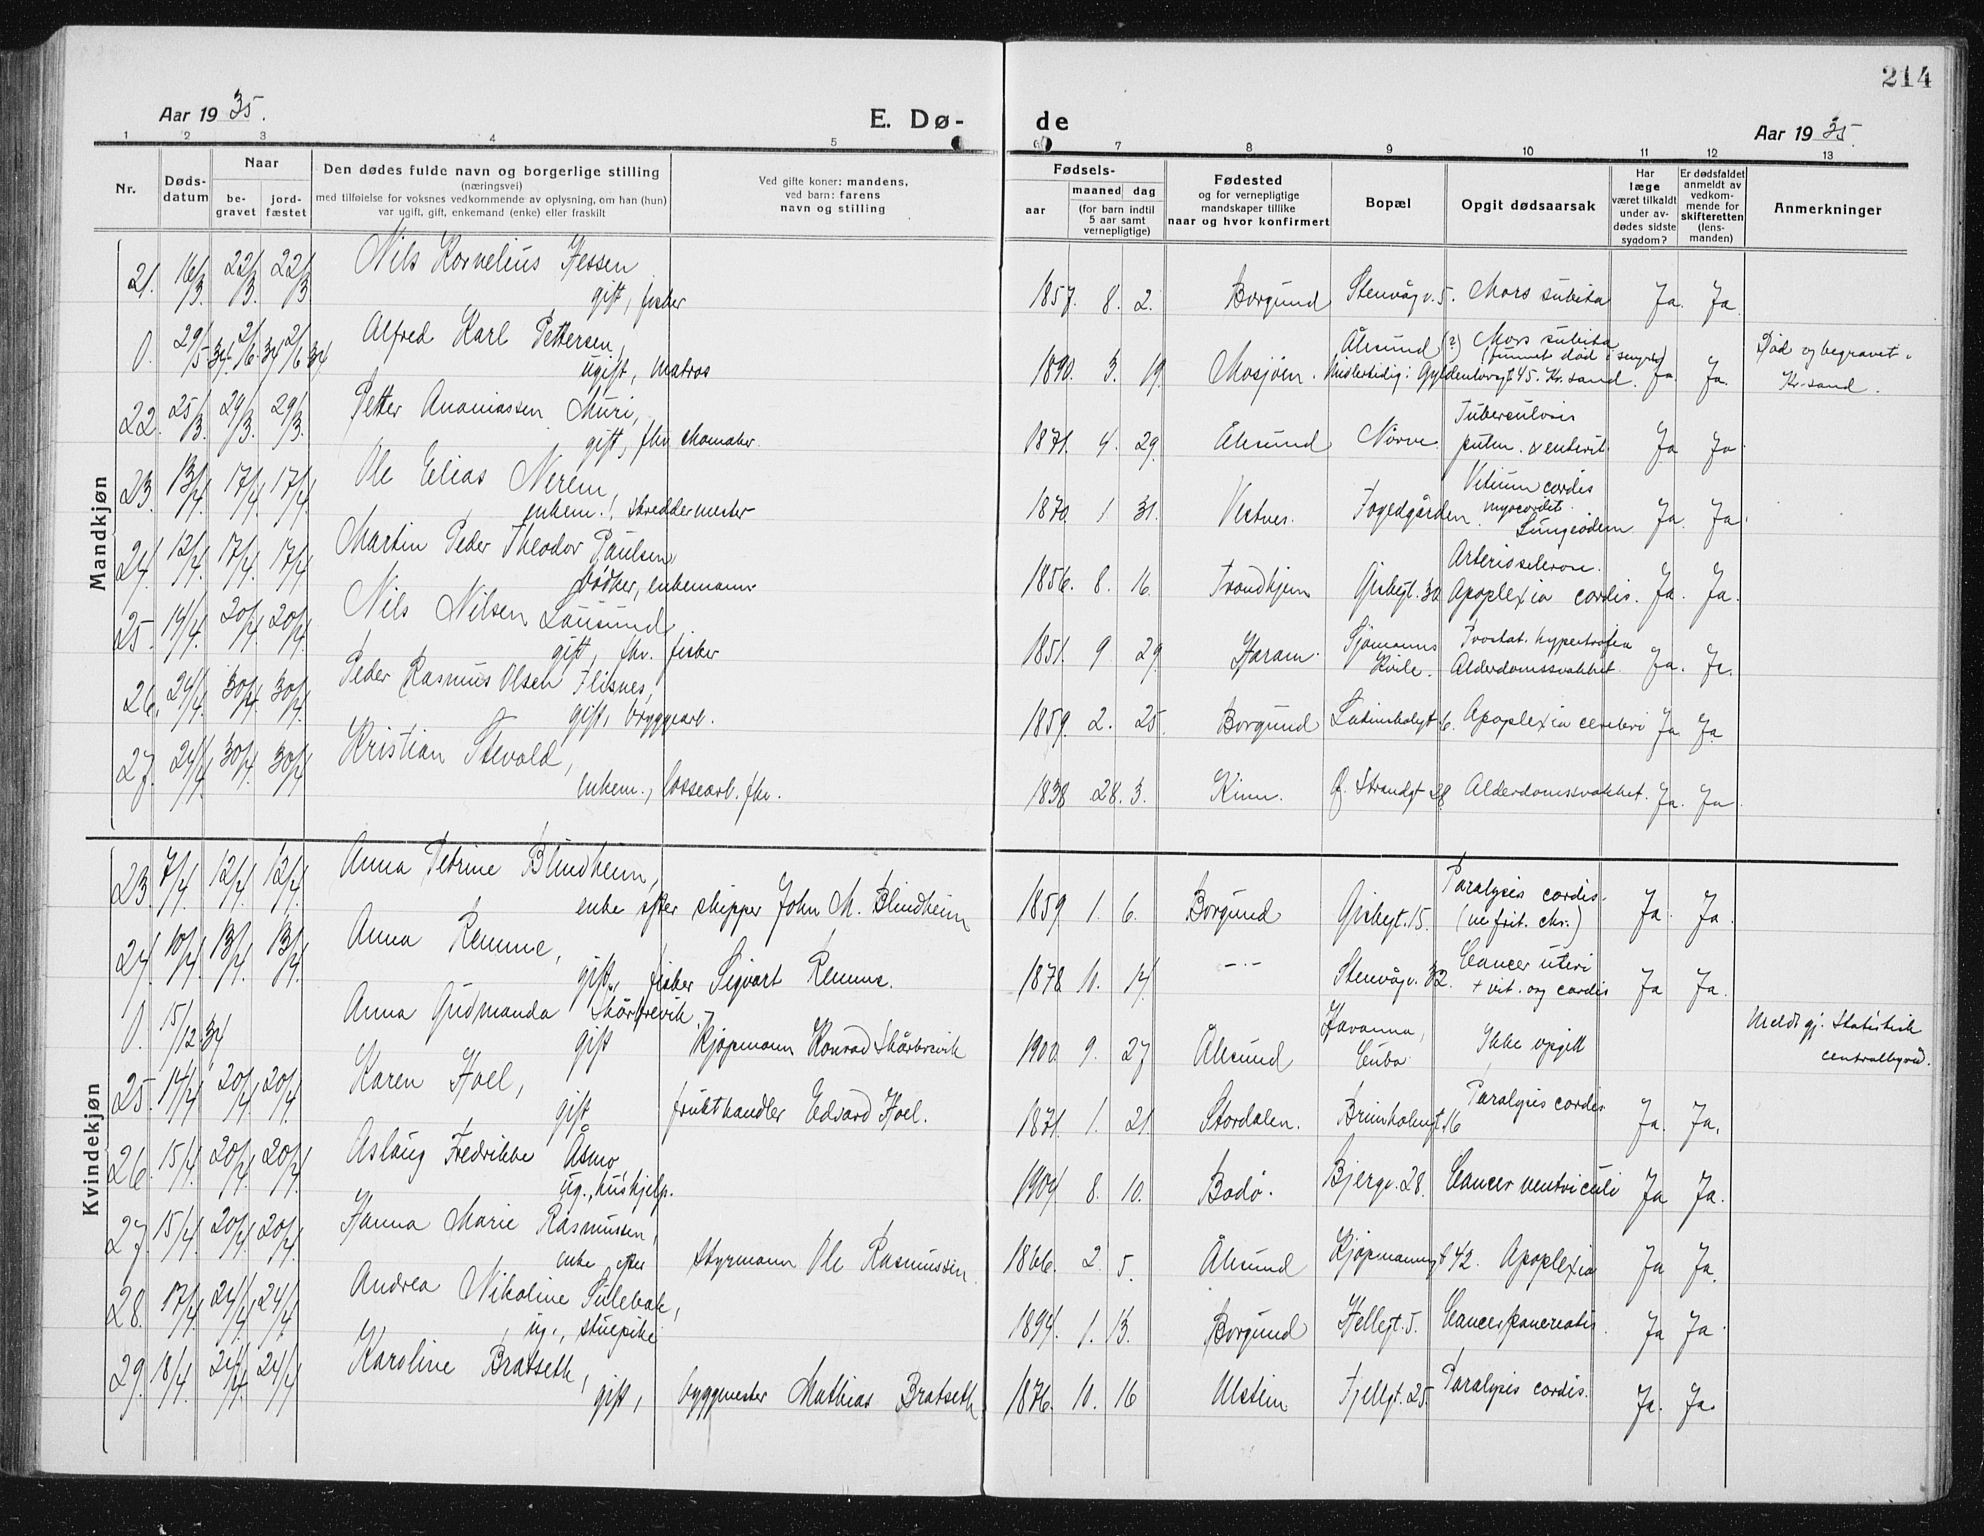 214
Aar 1935.
E. Dø-
de
Aar 1935.
1 2 3 4 5 6 7 8 9 10 11 12 13
Nr.
Døds-
datum
Naar
be-
gravet
jord-
fæstet
Den dødes fulde navn og borgerlige stilling
(næringsvei)
med tilføielse for voksnes vedkommende av oplysning, om han (hun)
var ugift, gift, enkemand (enke) eller fraskilt
Ved gifte koner: mandens,
ved barn: farens
navn og stilling
Fødsels-
aar
maaned dag
(for barn indtil
5 aar samt
vernepligtige)
Fødested
og for vernepligtige
mandskaper tillike
naar og hvor konfirmert
Bopæl
Opgit dødsaarsak
Har
læge
været tilkaldt
under av-
dødes sidste
sygdom?
Er dødsfaldet
anmeldt av
vedkom-
mende for
skifteretten
(lens-
manden)
Anmerkninger
Mandkjøn
21. 16/3. 22/3. 22/3 Nils Kornelius Hessen
gift, fisker
1857. 8. 2. Borgund Stenvågv. 5. Mors subita Ja. Ja.
0. 29/5 34 2/6 34 2/6 34 Alfred Karl Pettersen,
ugift, matros
1890. 3. 19. Mosjøen. Ålesund (?) Mors subita
(funnet død i sengen)
Midlertidig: Gyldenløvsgt 45. Kr.sand. Ja. Ja.
Død og begravet i
Kr.sand.
22. 25/3. 29/3. 29/3. Petter Ananiassen Muri,
gift, fhv. skomaker.
1871. 4. 29. Ålesund Nørve Tuberculosis
pulm. & enterit. Ja Ja
23. 13/4. 17/4. 17/4. Ole Elias Nerem,
enkem., skreddermester
1870. 1. 31. Vestnes. Fogedgården. Vitium cordis
myocardit.
Lungeødem. Ja. Ja.
24. 12/4. 17/4. 17/4. Martin Peder Theodor Paulsen
bødker, enkemann
1856. 8. 16. Trondhjem Girskegt. 30 Arteriosclerose.
Apoplexia cordis. Ja. Ja.
25. 14/4. 20/4. 20/4. Nils Nilsen Lausund,
gift, fhv. fisker
1851. 9 29 Haram. Sjømanns
Kvile. Prostat. hypertrofia
Alderdomssvakhet. Ja. Ja.
26. 24/4. 30/4. 30/4. Peder Rasmus Olsen Flisnes,
gift, bryggearb.
1859. 2. 25. Borgund Latinskolegt. 6. Apoplexia cerebri Ja Ja
27. 24/4. 30/4. 30/4. Kristian Stevold,
enkem., lossearb. fhv.
1838 28. 3. Kinn. Ø. Strandgt 28 Alderdomssvakhet. Ja. Ja
Kvindekjøn
23. 7/4. 12/4. 12/4. Anna Petrine Blindheim,
enke efter skipper John M. Blindheim
1859 1. 6. Borgund Girskegt. 15. Paralysis cordis.
(nefrit. chr.) Ja. Ja.
24. 10/4. 13/4. 13/4. Anna Remme,
gift, fisker Sigvart Remme.
1878 10. 14. -"- Stenvågv. 32. Cancer uteri
+ vit. org cordis Ja Ja.
0. 15/12. 34 Anna Gudmanda Skårbrevik,
gift kjøpmann Konrad Skårbrevik
1900. 9. 27 Ålesund Havanna,
Cuba Ikke opgitt
Meldt gj. Statistisk
centralbyrå.
25. 14/4. 20/4. 20/4. Karen Hoel,
gift frukthandler Edvard Hoel.
1871. 1. 21. Stordalen. Brunholmgt. 16 Paralysis cordis Ja. Ja.
26. 15/4. 20/4. 20/4. Aslaug Fredrikke Åsmo,
ug., huskjelp.
1904 8. 10. Bodø. Bjergv. 28. Cancer ventriculi Ja Ja.
27. 15/4. 20/4. 20/4. Hanna Marie Rasmussen,
enke efter styrmann Ole Rasmussen.
1866. 2 5. Ålesund Kjøpmannsgt 42. Apoplexia Ja Ja.
28. 17/4. 24/4. 24/4. Andrea Nikoline Sulebak,
ug., stuepike
1894. 1. 13. Borgund Hellegt. 5. Cancer pancreatis. Ja Ja
29. 18/4. 24/4. 24/4 Karoline Bratseth,
gift, byggmester Mathias Bratseth
1876. 10. 16 Ulstein Fjellgt. 25. Paralysis cordis. Ja. Ja.